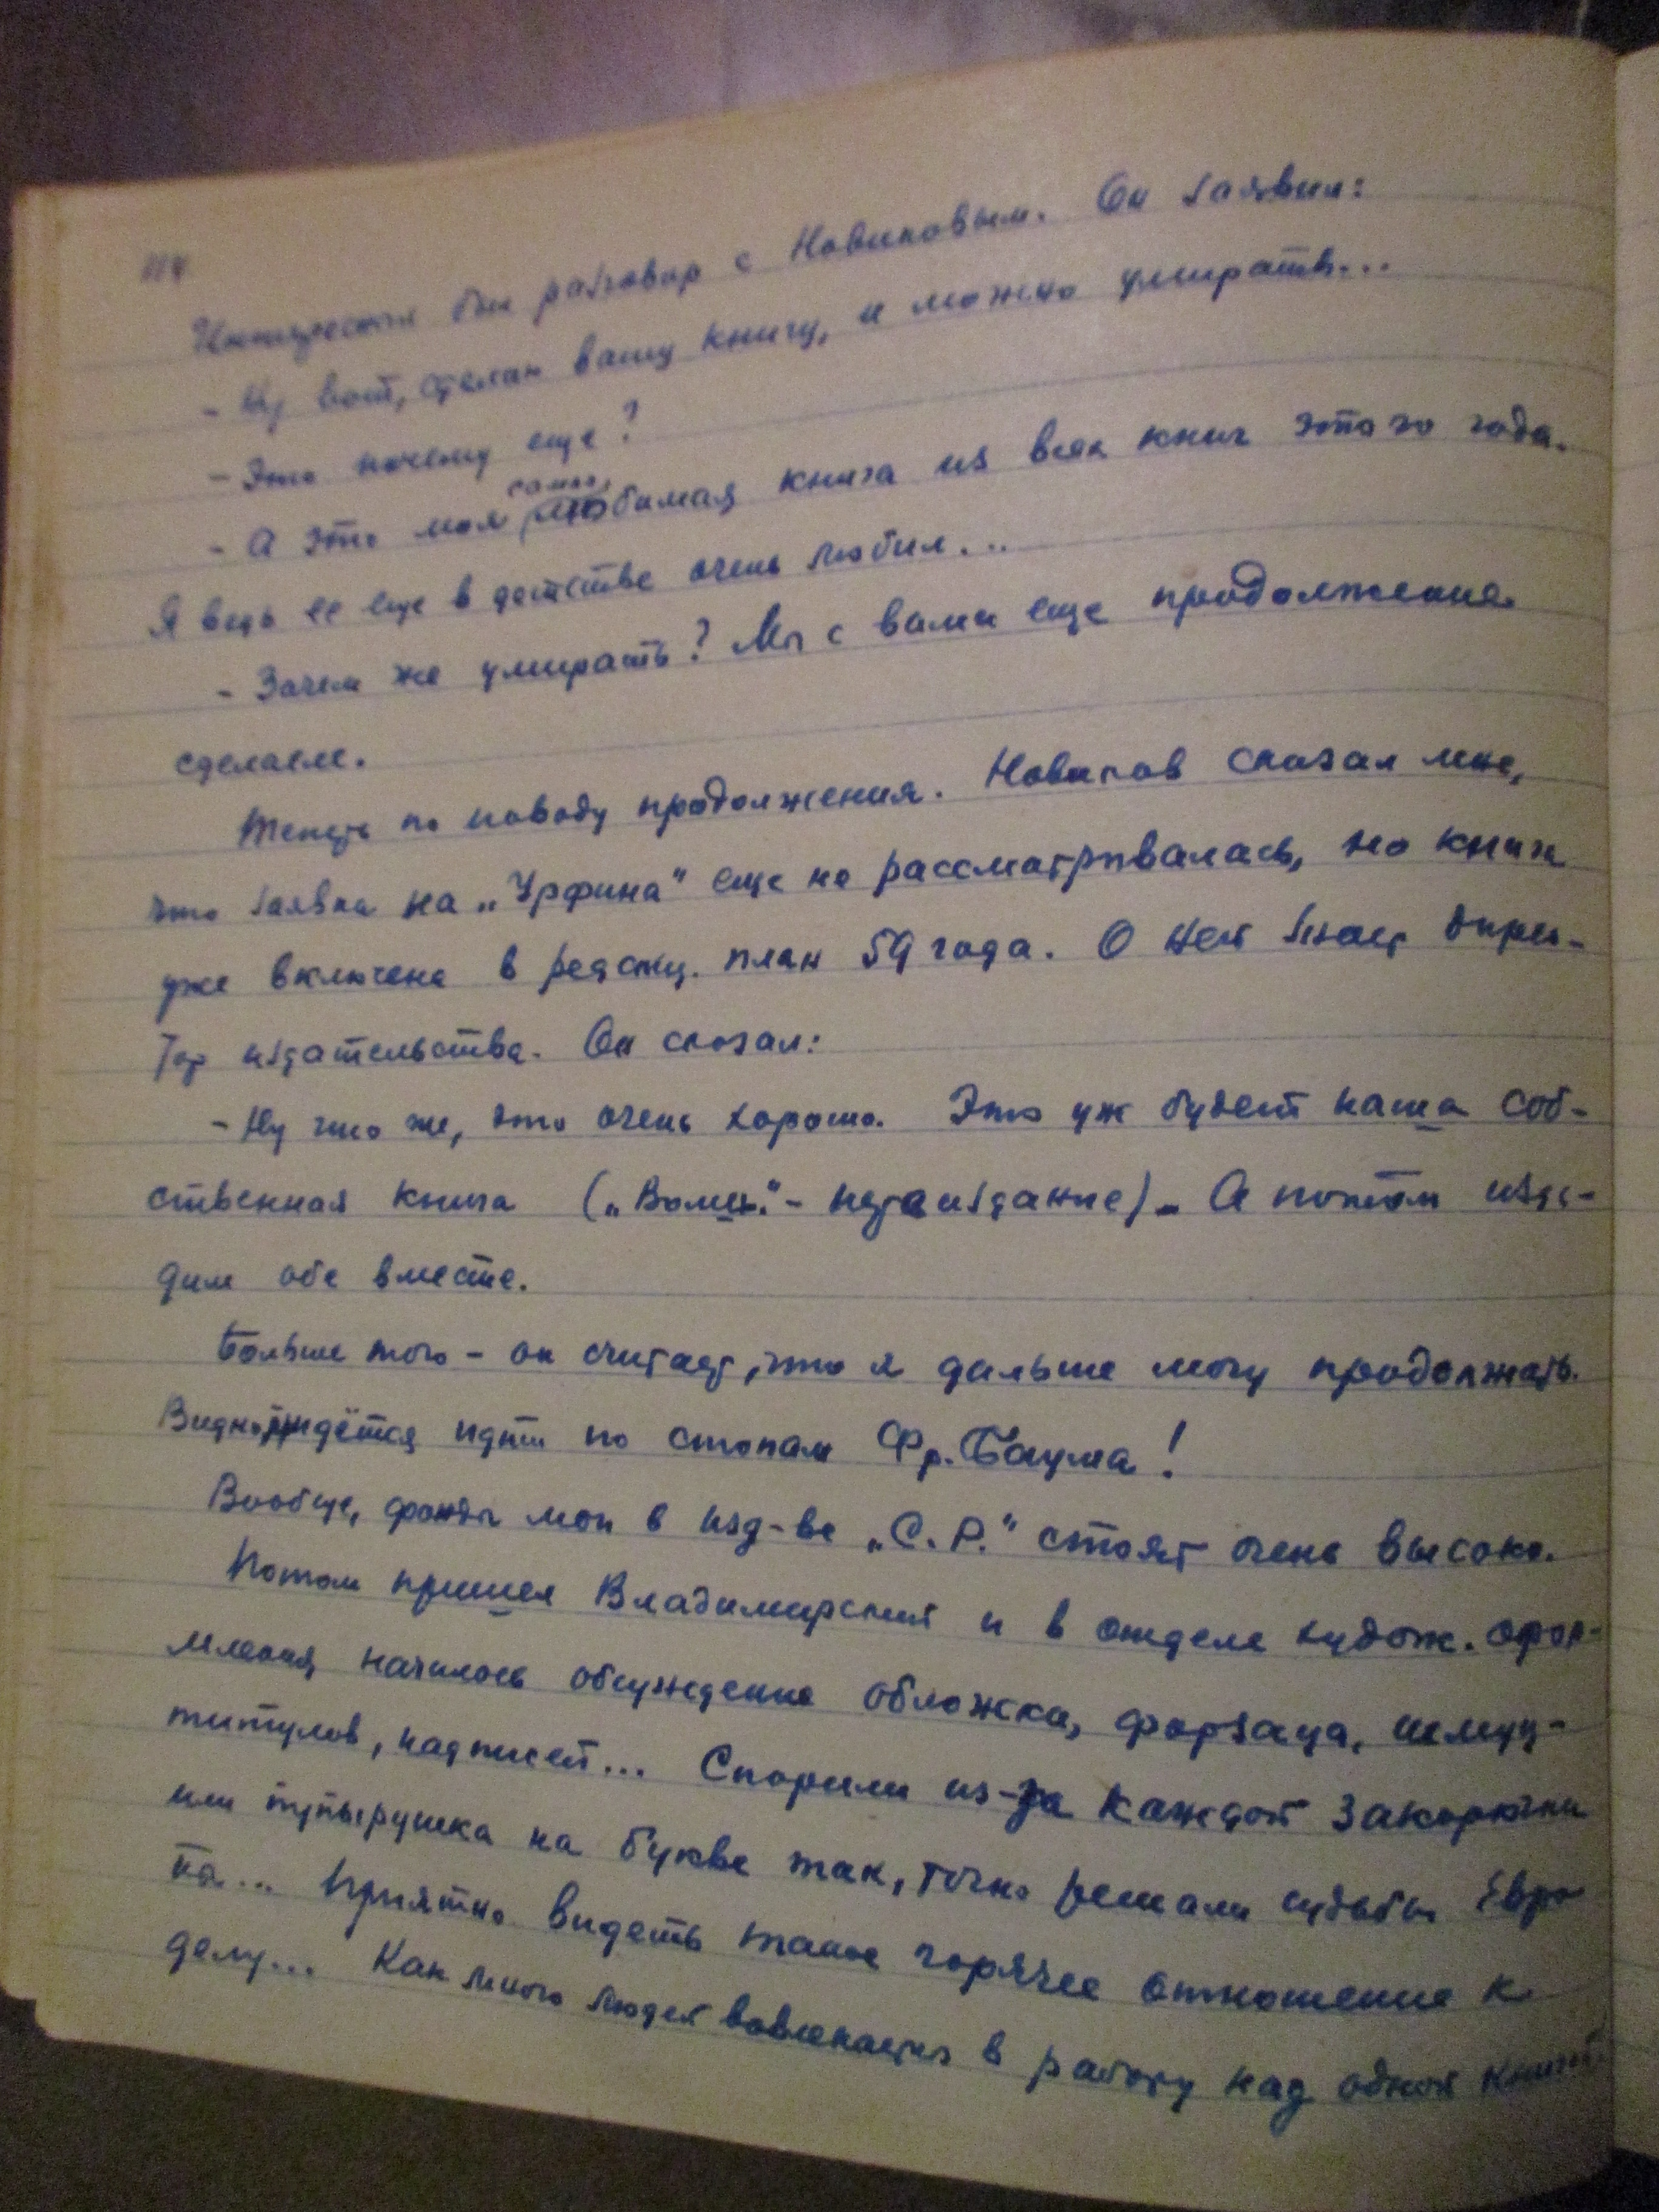 114
Интересен был разговор с Новиковым. Он заявил:
- Ну вот, сделан вашу книгу, и можно умирать...
- Это почему еще?
самая
- А это моя любимая книга из всех книг этого года.
Я ведь ее еще в детстве очень любил...
- Зачем же умирать? Мы с вами еще продолжение
сделаем.
Теперь по поводу продолжения. Новиков сказал мне,
что заявка на „Урфина" еще не рассматривалась, но книга
уже включена в редакц. план 59 года. О ней знает дирек-
тор издательства. Он сказал:
- Ну что же, это очень хорошо. Это уж будет наша соб-
ственная книга („Волш." - переиздание). А потом изда-
дим обе вместе.
Больше того - он считает, что я дальше могу продолжать.
Видно, придётся идти по стопам Фр. Баума!
Вообще, фонды мои в изд-ве „С.Р." стоят очень высоко.
Потом пришел Владимирский и в отделе худож. офор-
мления началось обсуждение обложки, форзаца, шмуц-
титулов, надписей... Спорили из-за каждой закорючки
или пупырушка на букве так, точно решали судьбы Евро
пы... Приятно видеть такое горячее отношение к
делу... Как много людей вовлекается в работу над одной книгой